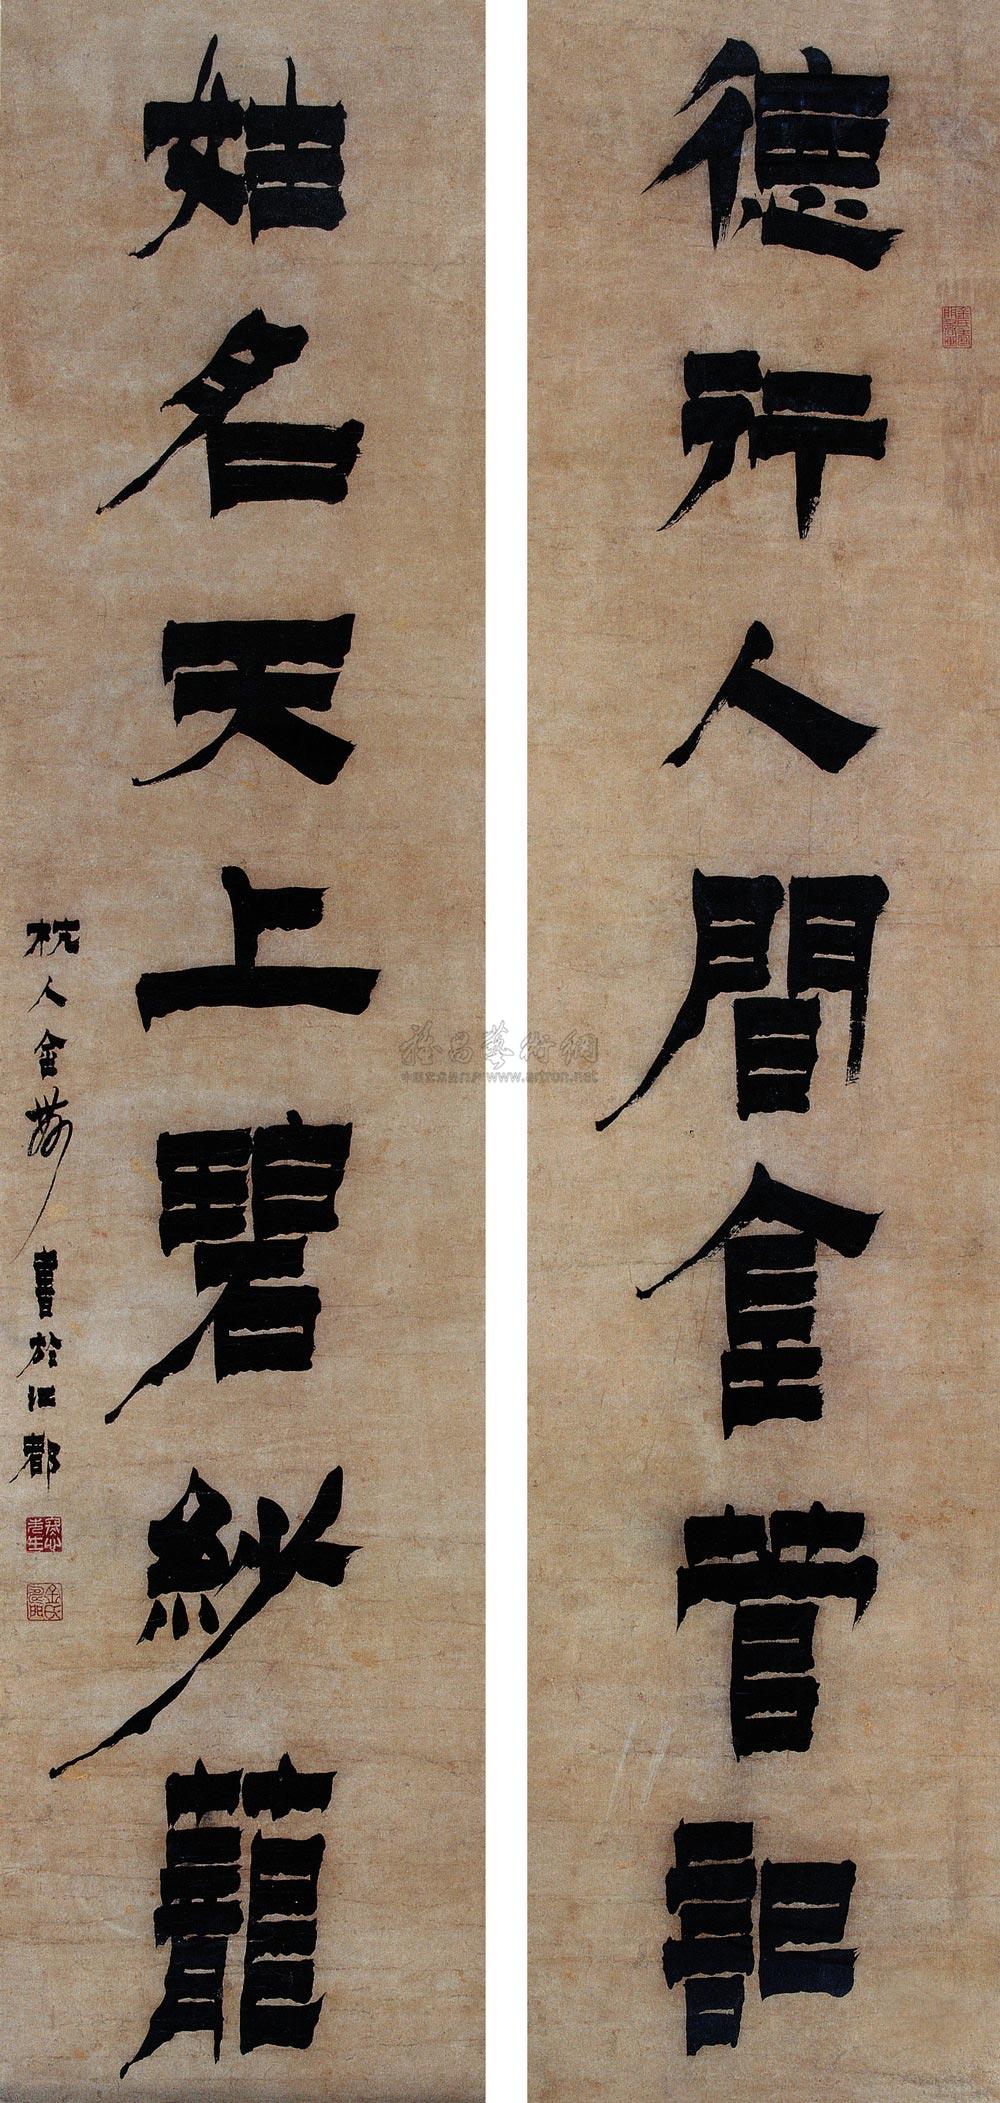 德行人間金管記
姓名天上碧紗籠
杭人金農書於江都
雅昌藝術網
www.artron.net